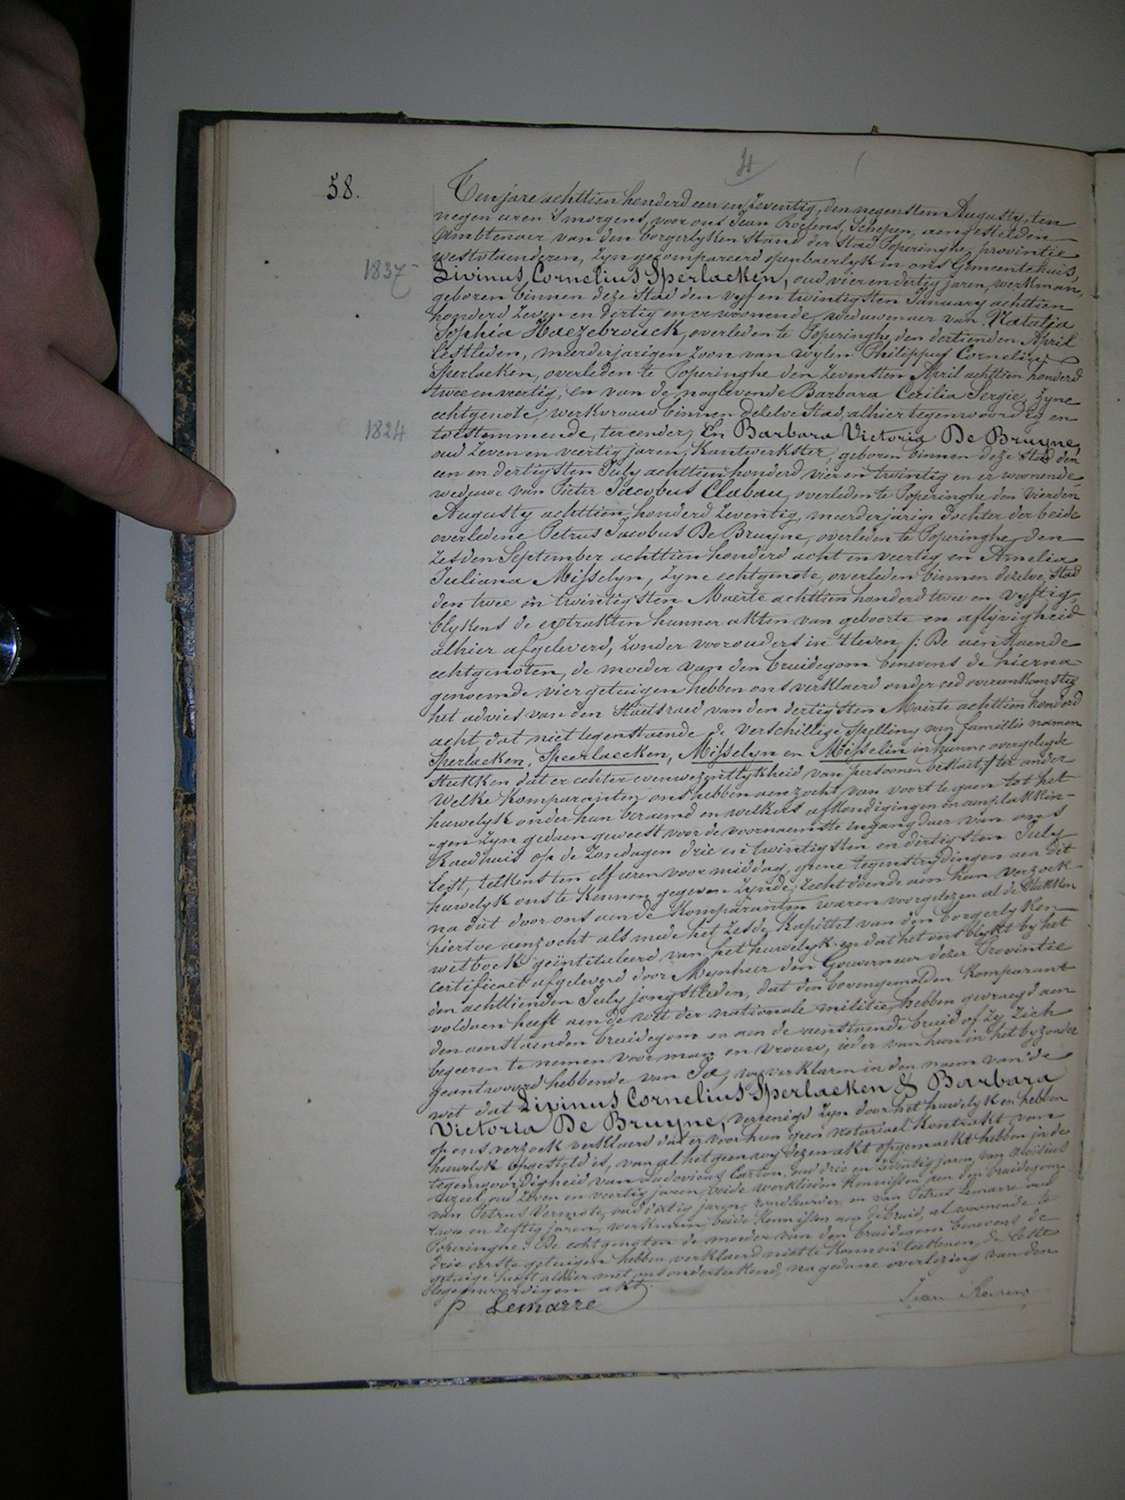 4
58.
Ten jare achttien honderd een en zeventig, den negensten Augusty, ten
negen uren 's morgens, voor ons Jean Roesens, Schepen, aengestelden
Ambtenaer van den borgerlyken Stand der Stad Poperinghe, provintie
westvlaenderen, zyn gecompareerd openbaerlyk in ons Gemeentehuis,
1837
Livinus Cornelius Sperlaeken, oud vier en dertig jaren, werkman,
geboren binnen deze Stad den vyf en twintigsten January achttien
honderd zeven en dertig en er woonende, weduwenaer van Natalia
Sophia Haezebrouck, overleden te Poperinghe den dertienden April
lestleden, meerderjarigen zoon van wylen Philippus Cornelius
Sperlaeken, overleden te Poperinghe den zevensten April achttien honderd
twee en veertig, en van de nog levende Barbara Cecilia Sergie, zyne
echtgenote, werkvrouw binnen dezelve stad, alhier tegenwoordig en
1824
toestemmende, ter eender; En Barbara Victoria De Bruyne,
oud zeven en veertig jaren, kantwerkster, geboren binnen deze Stad den
een en dertigsten July achttien honderd vier en twintig en er woonende,
weduwe van Pieter Jacobus Clabau, overleden te Poperinghe den vierden
Augusty achttien honderd zeventig, meerderjarige dochter der beide
overledene Petrus Jacobus De Bruyne, overleden te Poperinghe, den
zesden September achttien honderd acht en veertig en Amelia
Juliana Misselyn, zyne echtgenote, overleden binnen dezelve Stad
den twee en twintigsten Maerte achttien honderd twee en vyftig,
blykens de extrakten hunner akten van geboorte en aflyvigheid
alhier afgeleverd, zonder voorouders in 't leven /: De aenstaende
echtgenoten, de moeder van den bruidegom benevens de hierna
genoemde vier getuigen hebben ons verklaerd onder eed overeenkomstig
het advies van den Staetsraed van den dertigsten Maerte achttien honderd
acht, dat niet tegenstaende de verschillige spelling van famillie namen
Sperlaeken, Speerlaecken, Misselyn en Misselin in hunne overgelegde
stukken dat er echter eenwezentlykheid van persoonen bestaet :/ ter ander
Welke komparanten ons hebben aenzocht van voort te gaen tot het
huwelyk onder hun beraemd en welkers afkondigingen en aenplakkin-
-gen zyn gedaen geweest voor de voornaemste ingangdeur van ons
Raedhuis op de zondagen drie en twintigsten en dertigsten July
lest, telkens ten elf uren voormiddag, geene tegenstrydingen aen dit
huwelyk ons te kennen gegeven zynde, recht doende aen hun verzoek
na dat door ons aen de komparanten waren voorgelezen al de stukken
hiertoe aenzocht als mede het zesde kapittel van den borgerlyken
wetboek geïntituleerd van het huwelyk en dat het ons blykt by het
certificaet afgeleverd door Mynheer den Gouverneur dezer Provintie
den achttienden July jongstleden, dat den bovengemelden komparant
voldaen heeft aen de wet der nationale militie, hebben gevraegd aen
den aenstaenden bruidegom en aen de aenstaende bruid of zy zich
begeeren te nemen voor man en vrouw, ieder van hun in het byzonder
geantwoord hebbende van Ja, wy verklaren in den naem van de
wet dat Livinus Cornelius Sperlaeken & Barbara
Victoria De Bruyne, vereenigd zyn door het huwelyk en hebben
op ons verzoek verklaerd dat er voor hun geen notarieel kontrakt van
huwelyk opgesteld is, van al het gene wy dezen akt opgemaekt hebben in de
tegenwoordigheid van Ludovicus Carton, oud drie en zeventig jaren, van Aloisius
oud zeven en veertig jaren, beide werklieden kennissen aen den bruidegom
van Petrus Vermote, oud dertig jaren, en van Petrus Lemarre oud
twee en zestig jaren, werkman, beide kennissen aen de bruid, al woonende te
Poperinghe. De echtgenoten de moeder van den bruidegom benevens de
drie eerste getuigen hebben verklaerd niet te konnen teekenen, de leste
getuige heeft alhier met ons onderteekend, na gedane overlezing van den
tegenwoordigen akt.
P Lemarre
Jean Roesens